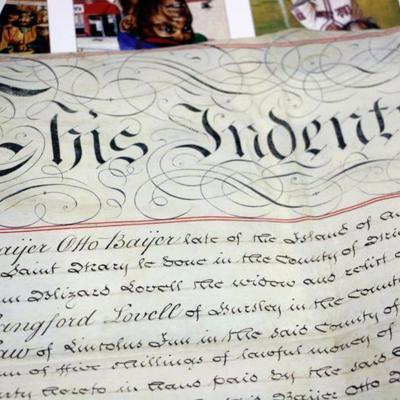 This Indent
Baijer Otto Baijer late of the Island of
Saint Mary le bone in the County of
Blizard Lovell the widow and relict
Langford Lovell of Bursley in the County
Law of Lincolns Inn in the said County of
of five shillings of lawful money of
thereto in hand paid by the said
Baijer Otto